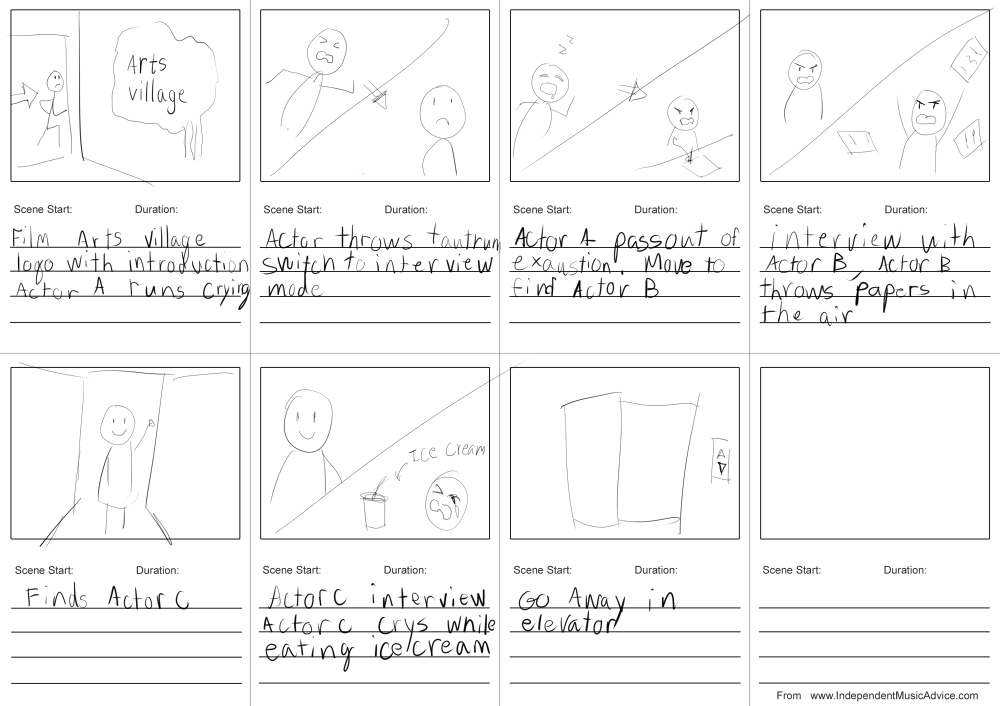 Arts
village
Scene Start: Duration:
Film Arts village
logo with introduction
Actor A runs crying
Scene Start: Duration:
Actor throws tantrum
switch to interview
mode
z z z
Scene Start: Duration:
Actor A passout of
exaustion. Move to
find Actor B
Scene Start: Duration:
interview with
Actor B, Actor B
throws papers in
the air
Scene Start: Duration:
Finds Actor C
Ice Cream
Scene Start: Duration:
Actor C interview
Actor C crys while
eating ice cream
Scene Start: Duration:
Go Away in
elevator
Scene Start: Duration:
From www.IndependentMusicAdvice.com